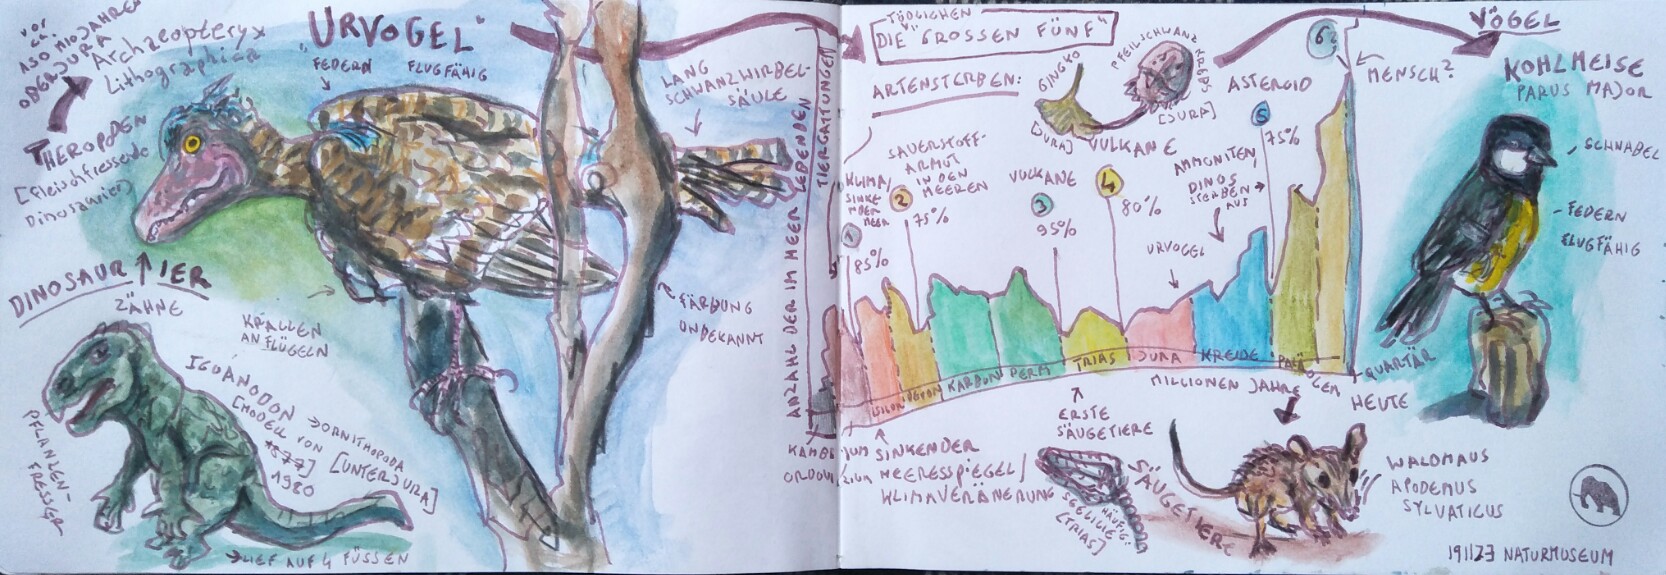 VOR
CA.
150 MIO JAHREN
OBERJURA
Archaeopteryx
Lithographica
"URVOGEL"
FEDERN
FLUGFÄHIG
THEROPODEN
[fleischfressende
Dinosaurier]
LANG
SCHWANZWIRBEL-
SÄULE
DINOSAURIER
ZÄHNE
KRALLEN
AN FLÜGELN
FÄRBUNG
UNBEKANNT
IGUANODON
[MODELL VON
1980
→ORNITHOPODA
[UNTERJURA]
PFLANZEN-
FRESSER
→LIEF AUF 4 FÜSSEN
ANZAHL DER IM MEER LEBENDEN
TIERGATTUNGEN
TÖDLICHEN
DIE "GROSSEN FÜNF"
ARTENSTERBEN:
GINGKO
[JURA]
PFEILSCHWANZ
KREBS
[JURA]
KLIMA/
SINKE
NDER
MEER
1
85%
SAUERSTOFF-
ARMUT
IN DEN
MEEREN
2
75%
VULKANE
3
95%
VULKANE
4
80%
ASTEROID
5
75%
AMMONITEN,
DINOS
STERBEN
AUS
URVOGEL
6?
MENSCH?
VÖGEL
KOHLMEISE
PARUS MAJOR
SCHNABEL
FEDERN
FLUGFÄHIG
KAMBRIUM
ORDOVIZIUM
SILUR
DEVON
KARBON
PERM
TRIAS
JURA
KREIDE
PALÄOGEN
QUARTÄR
MILLIONEN JAHRE
HEUTE
SINKENDER
MEERESSPIEGEL/
KLIMAVERÄNERUNG
ERSTE
SÄUGETIERE
HÄUFIG:
SEELILIE
[TRIAS]
SÄUGETIERE
WALDMAUS
APODEMUS
SYLVATICUS
191123 NATURMUSEUM